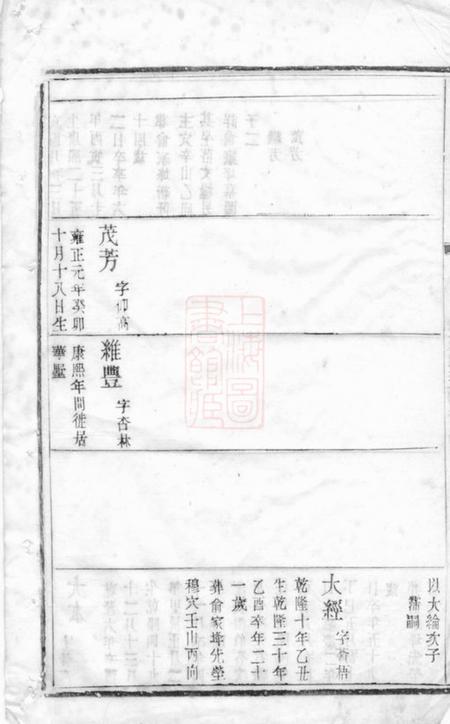 茂芳 字仰高
雍正元年癸卯
十月十八日生
維豐 字杏林
康熙年間徙居
華墅
以大綸次子
嗣
大經 字
乾隆十年乙丑
生乾隆三十年
乙酉卒年二十
一歲
葬俞家埄先塋
穆穴壬山丙向
上海圖
書館藏